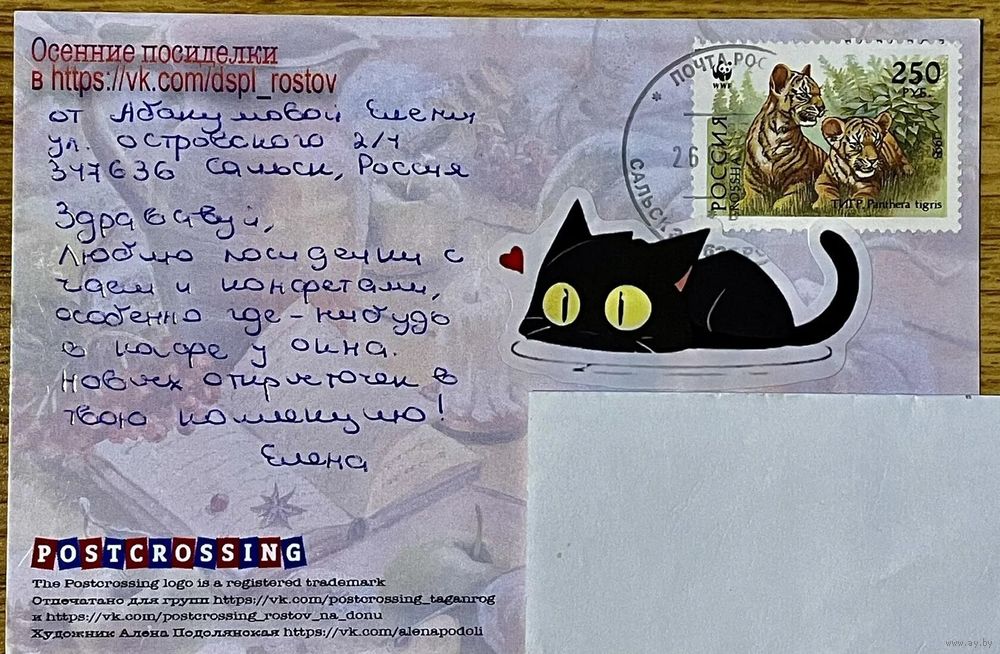 Осенние посиделки
в https://vk.com/dspl_rostov
от Абакумовой Елены
ул. островского 2/4
347636 Сальск, Россия
Здравствуй,
Люблю посиделки с
чаем и конфетами,
особенно где-нибудь
в кафе у окна.
Новых открыточек в
твою коллекцию!
Елена
ПОЧТА РОС
26
САЛЬСК
WWF
250
РУБ.
РОССИЯ
ROSSIJA
1993
ТИГР. Panthera tigris
POSTCROSSING
The Postcrossing logo is a registered trademark
Отпечатано для групп https://vk.com/postcrossing_taganrog
и https://vk.com/postcrossing_rostov_na_donu
Художник Алена Подолянская https://vk.com/alenapodoli
www.ay.by